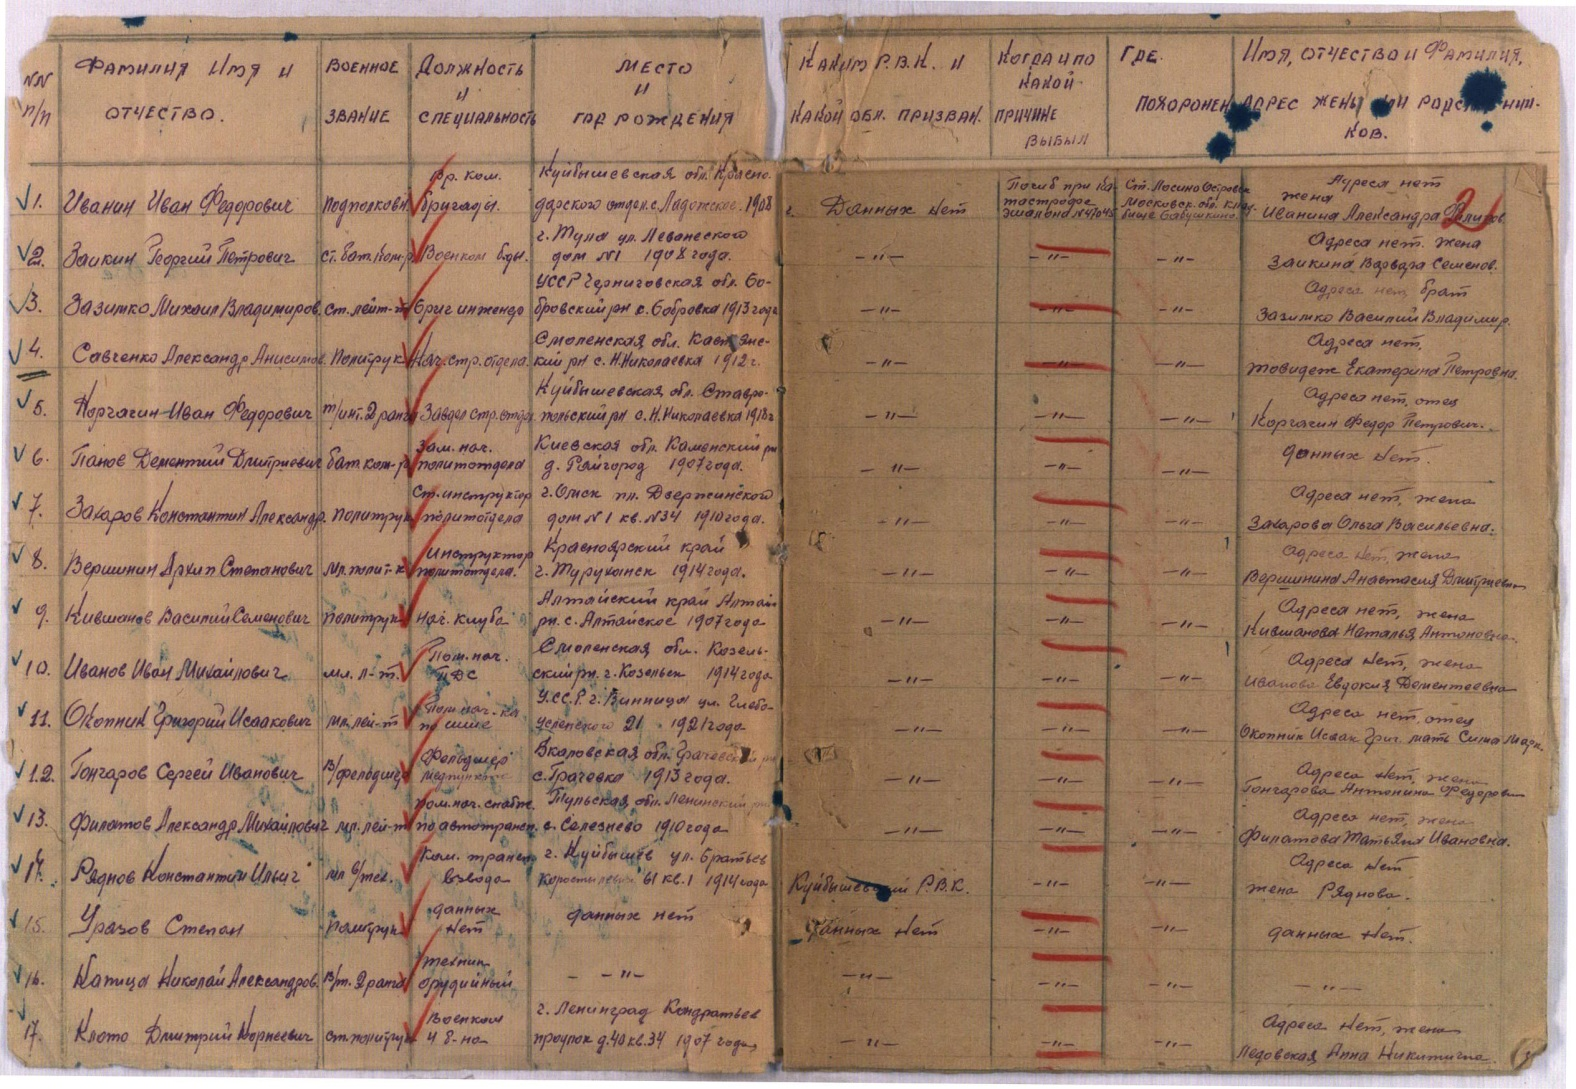 NN п/п
ФАМИЛИЯ ИМЯ И ОТЧЕСТВО.
ВОЕННОЕ ЗВАНИЕ
ДОЛЖНОСТЬ И СПЕЦИАЛЬНОСТЬ
МЕСТО И ГОД РОЖДЕНИЯ
КАКИМ Р.В.К. И КАКОЙ ОБЛ. ПРИЗВАН.
КОГДА И ПО КАКОЙ ПРИЧИНЕ ВЫБЫЛ
ГДЕ ПОХОРОНЕН
ИМЯ, ОТЧЕСТВО И ФАМИЛИЯ, АДРЕС ЖЕНЫ ИЛИ РОДСТВЕННИКОВ.
2
1. Иванин Иван Федорович подполковн. бригады. Куйбышевская обл. Красно- дарского отдел. с. Ладожское. 1908 г. Данных нет Погиб при ка тастрофе эшалона №47045 Ст. Лосино Островск Московск. обл. Адреса нет жена Иванина Александра
2. Заикин Георгий Петрович ст. бат. ком-р Военком б-ды. г. Тула ул. Леваневского дом №1 1908 года. —"— —"— —"— Адреса нет. жена Заикина Варвара Семенов.
3. Зазимко Михаил Владимиров. ст. лейт-т бриг инженер УССР Черниговская обл. Бо- бровский рн с. Бобровка 1913 года —"— —"— —"— Адреса нет, брат Зазимко Василий Владимир.
4. Савченко Александр Анисимов. Политрук Нач. стр. отдела. Смоленская обл. с. Н. Николаевка 1912 г. —"— —"— —"— Адреса нет. Екатерина Петровна.
5. Корчагин Иван Федорович т/инт. 2 ранга Завдел стр. отдел Куйбышевская обл. Ставро- польский рн с. Н. Николаевка 1918 г —"— —"— —"— Адреса нет, отец Корчагин Федор Петрович.
6. Панов Дементий Дмитриевич бат. ком-р Зам. нач. политотдела Киевская обл. Каменский рн д. Райгород 1907 года. —"— —"— —"— Данных нет.
7. Захаров Константин Александр. политрук Ст. инструктор политотдела г. Омск пл. Дзержинского дом №1 кв. №34 1910 года. —"— —"— —"— Адреса нет, жена Захарова Ольга Васильевна.
8. Вершинин Архип Степанович мл. полит-к Инструктор политотдела. Красноярский край г. Туруханск 1914 года. —"— —"— —"— Адреса нет, жена Вершинина Анастасия Дмитриевна
9. Кившанов Василий Семенович политрук Нач. клуба Алтайский край Алтай рн. с. Алтайское 1907 года —"— —"— —"— Адреса нет, жена Кившанова Наталья Антоновна.
10. Иванов Иван Михайлович мл. л-т. Пом. нач. ПДС Смоленская обл. Козель- ский рн. г. Козельск 1914 года —"— —"— —"— Адреса нет, жена Иванова Евдокия Дементеевна
11. Окопник Григорий Исаакович мл. лей-т Пом. нач-ка УССР г. Винница ул. Глебо- Успенского 21 1921 года —"— —"— —"— Адреса нет, отец Окопник Исаак Григ. мать Сима Марк.
12. Гончаров Сергей Иванович в/фельдшер Фельдшер медпункта обл. Грачевский рн с. Грачевка 1913 года. —"— —"— —"— Адреса нет, жена Гончарова Антонина Федоровн
13. Филатов Александр Михайлович мл. лей-т пом. нач. снабж. по автотрансп. Тульская обл. Ленинский рн с. Селезнево 1910 года —"— —"— —"— Адреса нет, жена Филатова Татьяна Ивановна.
14. Ряднов Константин Ильич мл в/тех. Ком. трансп взвода г. Куйбышев ул. Братьев Коростылевых 61 кв. 1 1914 года Куйбышевский Р.В.К. —"— —"— Адреса нет. жена Ряднова.
15. Уразов Степан Политрук данных нет данных нет Данных нет —"— —"— данных нет.
16. Капица Николай Александров. в/т. 2 ранга техник орудийный —"— —"— —"— —"— —"—
17. Клото Дмитрий Корнеевич ст. политрук Военком г. Ленинград Кондратьев проулок д. 40 кв. 34 1907 года, —"— —"— —"— Адреса нет, жена Анна Никитична.